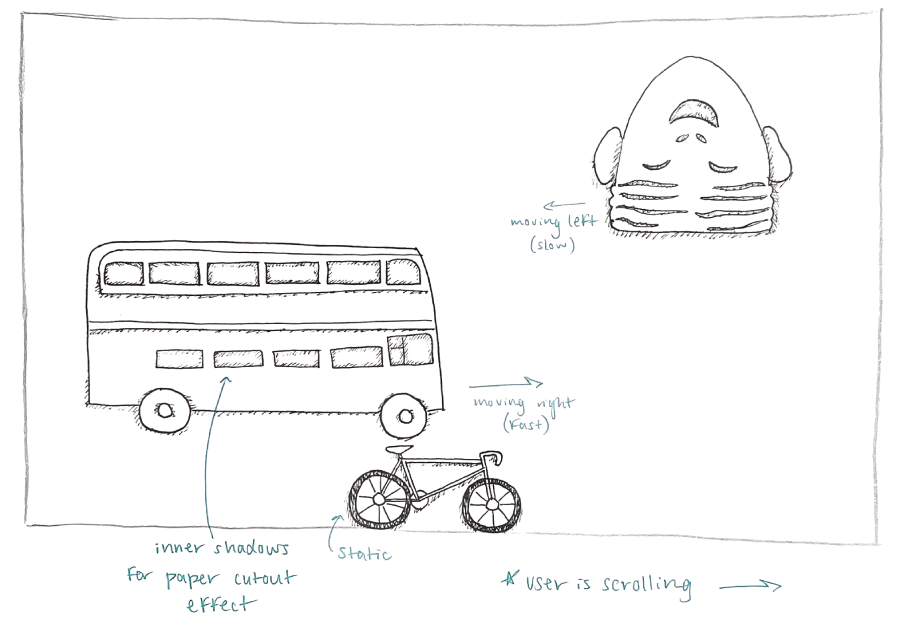 moving left
(slow)
moving right
(fast)
inner shadows
for paper cutout
effect
static
* user is scrolling